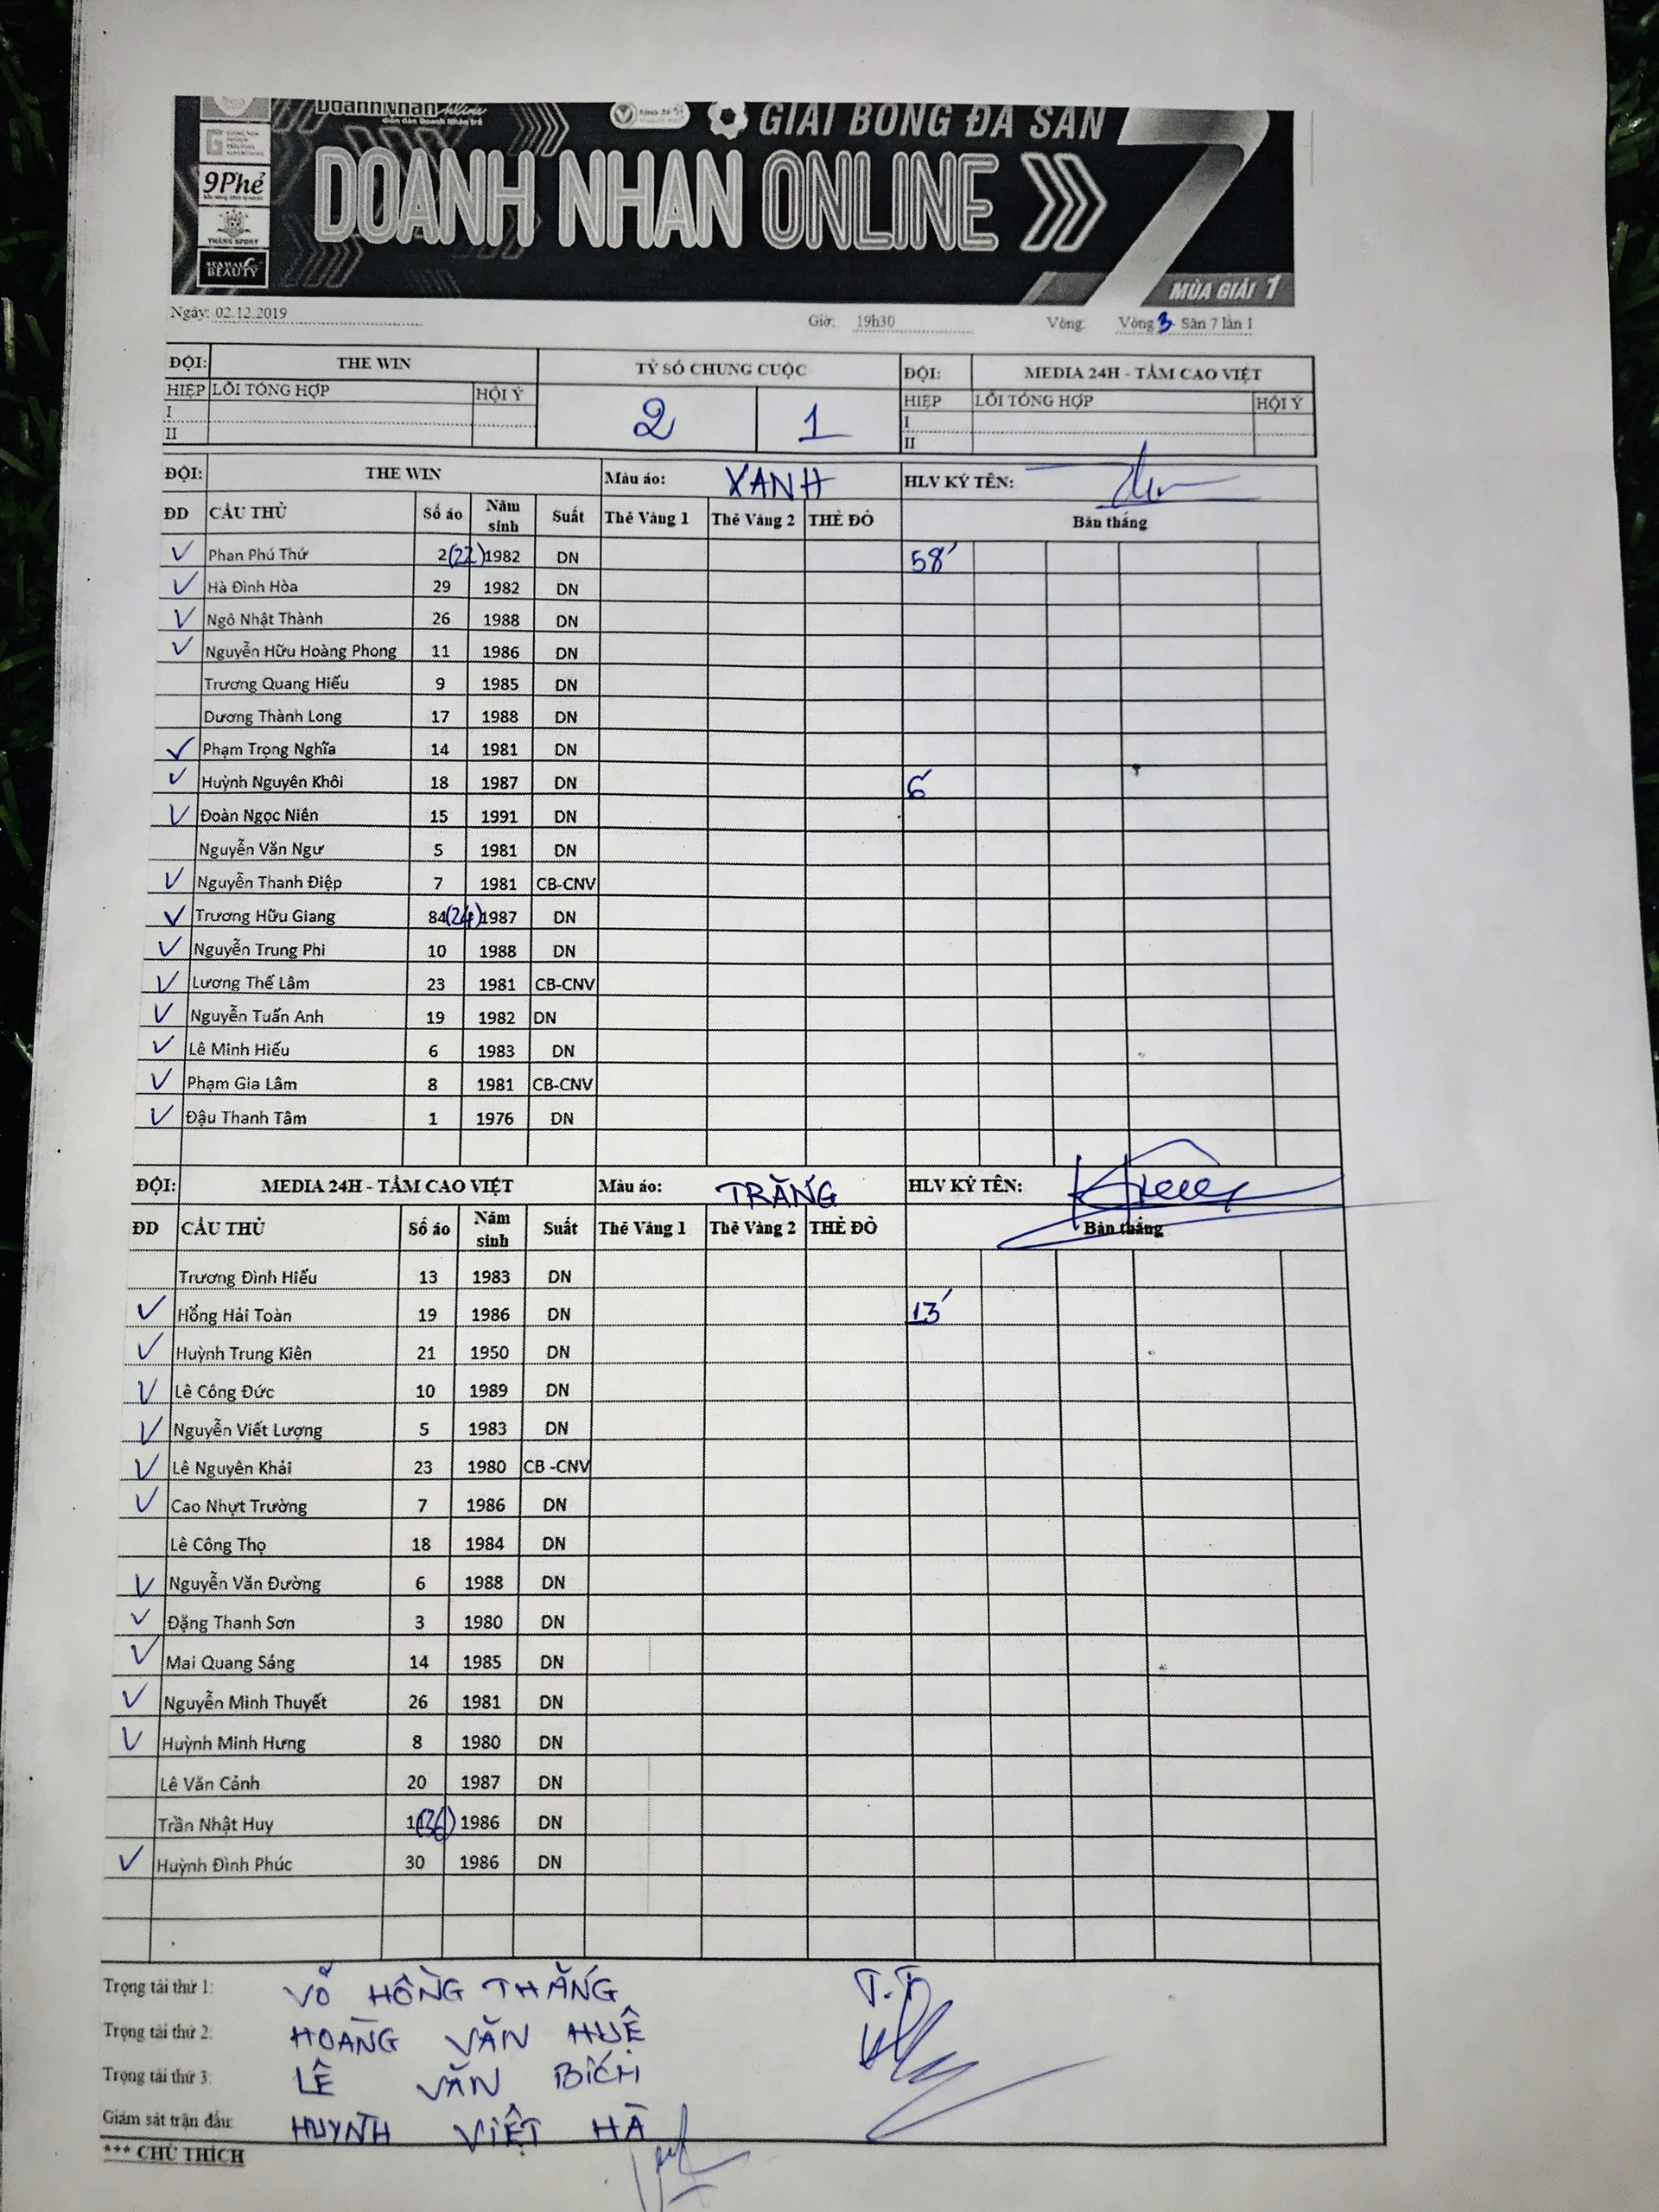 DoanhNhân Online
GIẢI BÓNG ĐÁ SÂN 7
9Phẻ
DOANH NHÂN ONLINE
THẮNG SPORT
BEAUTY
MÙA GIẢI 1
Ngày: 02.12.2019 Giờ: 19h30 Vòng: Vòng 3 Sân 7 lần 1
ĐỘI: THE WIN TỶ SỐ CHUNG CUỘC ĐỘI: MEDIA 24H - TẦM CAO VIỆT
HIỆP LỖI TỔNG HỢP HỘI Ý 2 1 HIỆP LỖI TỔNG HỢP HỘI Ý
I I
II II
ĐỘI: THE WIN Màu áo: XANH HLV KÝ TÊN:
ĐD CẦU THỦ Số áo Năm sinh Suất Thẻ Vàng 1 Thẻ Vàng 2 THẺ ĐỎ Bàn thắng
Phan Phú Thứ 2 (22) 1982 DN 58'
Hà Đình Hòa 29 1982 DN
Ngô Nhật Thành 26 1988 DN
Nguyễn Hữu Hoàng Phong 11 1986 DN
Trương Quang Hiếu 9 1985 DN
Dương Thành Long 17 1988 DN
Phạm Trọng Nghĩa 14 1981 DN
Huỳnh Nguyên Khôi 18 1987 DN 6'
Đoàn Ngọc Niên 15 1991 DN
Nguyễn Văn Ngư 5 1981 DN
Nguyễn Thanh Điệp 7 1981 CB-CNV
Trương Hữu Giang 84 (24) 1987 DN
Nguyễn Trung Phi 10 1988 DN
Lương Thế Lâm 23 1981 CB-CNV
Nguyễn Tuấn Anh 19 1982 DN
Lê Minh Hiếu 6 1983 DN
Phạm Gia Lâm 8 1981 CB-CNV
Đậu Thanh Tâm 1 1976 DN
ĐỘI: MEDIA 24H - TẦM CAO VIỆT Màu áo: TRẮNG HLV KÝ TÊN:
ĐD CẦU THỦ Số áo Năm sinh Suất Thẻ Vàng 1 Thẻ Vàng 2 THẺ ĐỎ Bàn thắng
Trương Đình Hiếu 13 1983 DN
Hồng Hải Toàn 19 1986 DN 13'
Huỳnh Trung Kiên 21 1950 DN
Lê Công Đức 10 1989 DN
Nguyễn Viết Lượng 5 1983 DN
Lê Nguyên Khải 23 1980 CB -CNV
Cao Nhựt Trường 7 1986 DN
Lê Công Thọ 18 1984 DN
Nguyễn Văn Đường 6 1988 DN
Đặng Thanh Sơn 3 1980 DN
Mai Quang Sáng 14 1985 DN
Nguyễn Minh Thuyết 26 1981 DN
Huỳnh Minh Hưng 8 1980 DN
Lê Văn Cảnh 20 1987 DN
Trần Nhật Huy (36) 1986 DN
Huỳnh Đình Phúc 30 1986 DN
Trọng tài thứ 1: VÕ HỒNG THẮNG T.T
Trọng tài thứ 2: HOÀNG VĂN HUỆ
Trọng tài thứ 3: LÊ VĂN BÍCH
Giám sát trận đấu: HUỲNH VIỆT HÀ
*** CHÚ THÍCH